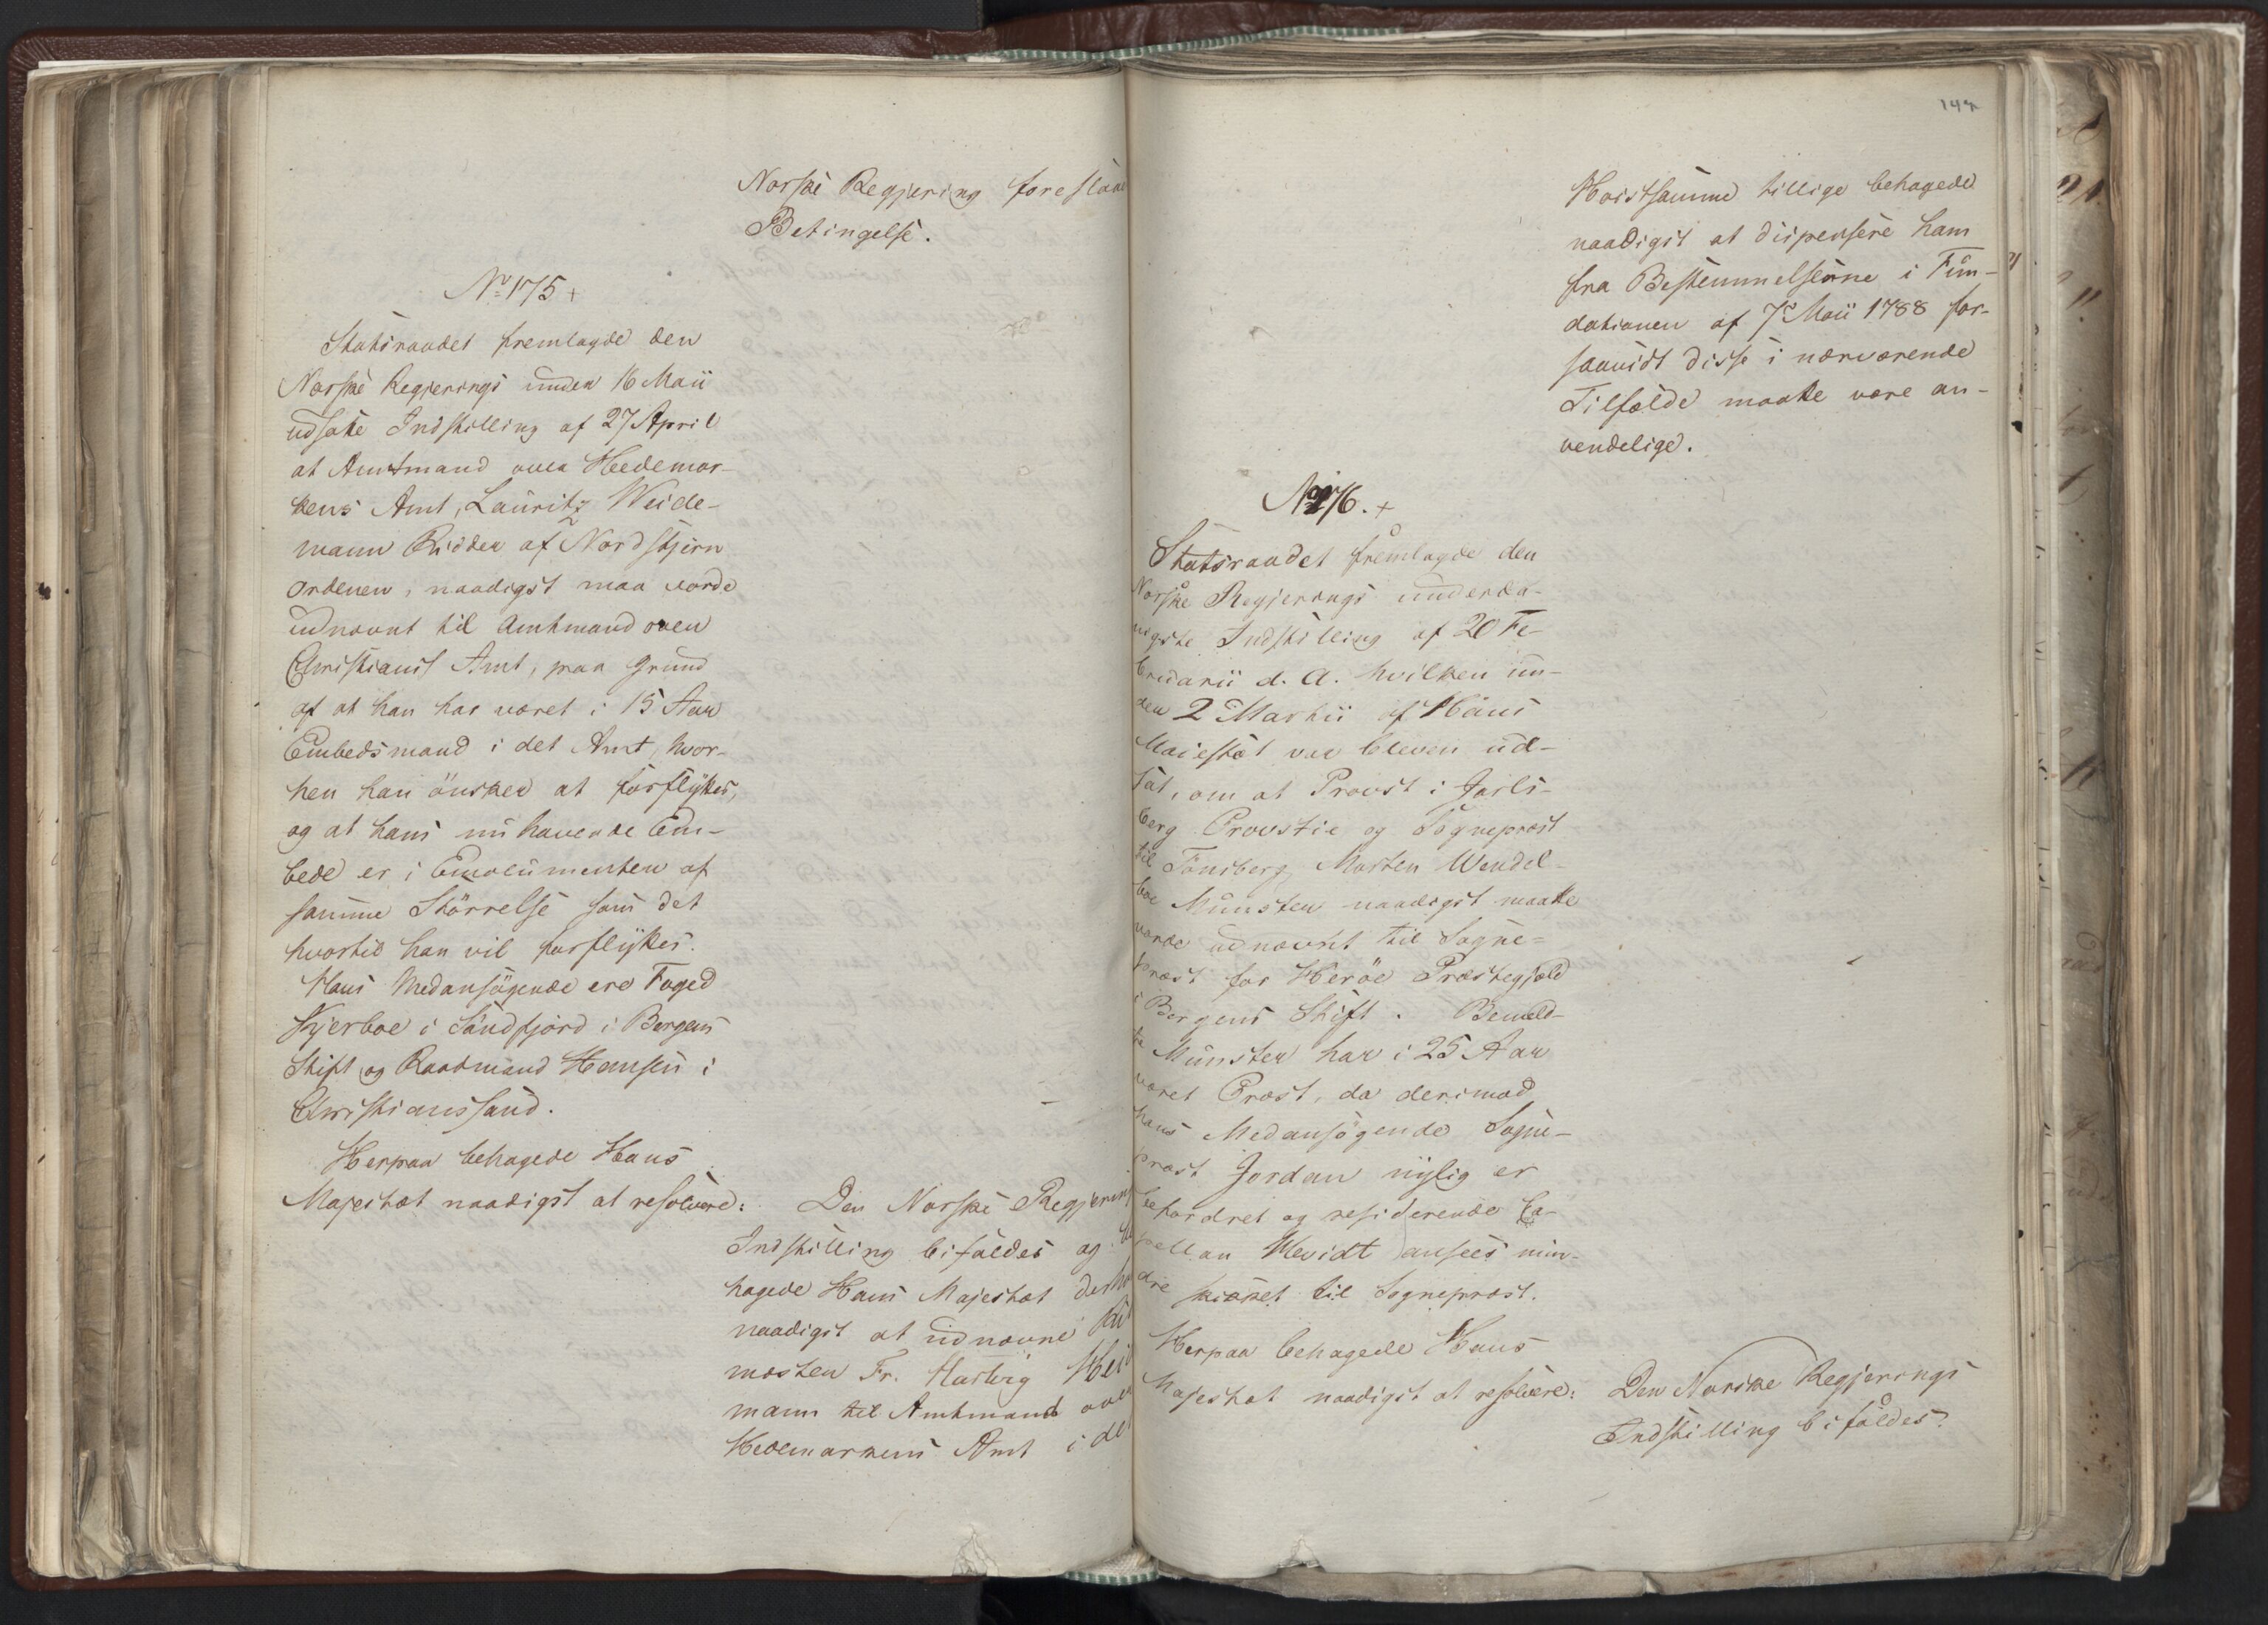 Norske Regjering foreslaae
Betingelse.
No 175 +
Statsraadet fremlagde den
Norske Regjerings under 16 Maii
udsatte Indstilling af 27 April
at Amtmand over Hedemar-
kens Amt, Lauritz Weide-
mann Ridder af Nordstjern
Ordenen, naadigst maa vorde
udnævnt til Amtmand over
Christians Amt, paa Grund
af at han har været i 15 Aar
Embedsmand i det Amt, hvor-
hen han önsker at forflyttes,
og at hans nu havende Em-
bede er i Emolumenter af
samme Störrelse som det
hvortil han vil forflyttes.
Hans Medansögende ere Foged
Kjerboe i Söndfjord i Bergens
Stift og Raadmand Hansen i
Christianssand.
Herpaa behagede Hans
Majestæt naadigst at resolvere:
Den Norske Regjerings
Indstilling bifaldes og be-
hagede Hans Majestæt derhos
naadigst at udnævne
mester Fr. Hartvig
mann til Amtmand over
Hedemarkens Amt i det
144
Höistsamme tillige behagede
naadigst at dispensere ham
fra Bestemmelserne i Fun-
dationen af 7de Maii 1788 for-
saavidt disse i nærværende
Tilfælde maatte være an-
vendelige.
No 176. +
Statsraadet fremlagde den
Norske Regjerings underda-
nigste Indstilling af 20 Fe-
bruarii d. A. hvilken un-
der 2 Martii af Hans
Majestæt var bleven ud-
sat, om at Provst i Jarls-
berg Provstie og Sognepræst
til Tönsberg Morten Wendel-
boe Münster naadigst maatte
vorde udnævnt til Sogne-
præst for Heröe Præstegjeld
i Bergens Stift. Bemeld-
te Münster har i 25 Aar
været Præst, da derimod
hans Medansögende Sogne-
præst Jordan nylig er
befordret og residerende Ca-
pellan Hvidt ansees min-
dre skikket til Sognepræst.
Herpaa behagede Hans
Majestæt naadigst at resolvere:
Den Norske Regjerings
Indstilling bifaldes.